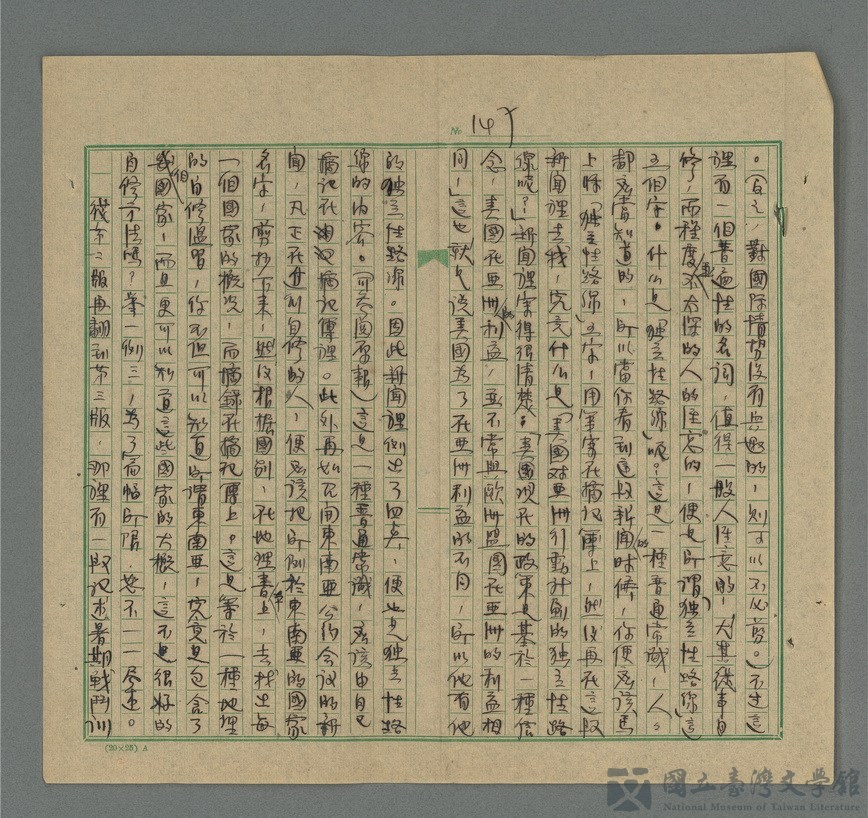 No 14
。(自之,對國際情勢沒有興趣的,則可以不必剪。)不过這
裡有一個普遍性的名詞,值得一般人注意的,尤其從事自
修,而程度並不太深的人的注意的,便是所謂「独立性路線」這
五個字。什么是「独立性路線」呢?這是一種普通常識,人人
都應當知道的,所以當你看到這段新聞的時候,你便應該馬
上將「独立性路線」五字,用筆寫在摘記簿上,然後再在這段
新聞裡去找,究竟什么是「美國对亜洲行動計劃的独立性路
線呢?」新聞裡寫得很清楚。「美國現在的政策是基於一種信
念,美國在亜洲的利益,並不常與歐洲盟國在亜洲的利益相
同,」這也就是說美國為了在亜洲利益的不同,所以他有他
的独立性路線。因此新聞裡列出了四点,便也是独立性路
線的内容。(可参閱原報)這是一種普通常識,應該由自己
摘記在摘記簿裡。此外再如召開東南亜公約会议的新
聞,凡正在進行自修的人,便應該把所列於東南亜的國家
名字,剪抄下来,然後根據國別,在地理書上,去找出每
一個國家的概況,而摘錄在摘記簿上。這是等於一種地理
的自修温習,你不但可以知道所謂東南亜,究竟是包含了
幾個國家,而且更可以知道這些國家的大概,這不是很好的
自修方法嗎?舉一例三,為了篇幅所限,恕不一一尽述。
從第二版再翻到第三版,那裡有一段記述暑期戰鬥訓
(20×25) A
國立臺灣文學館
National Museum of Taiwan Literature